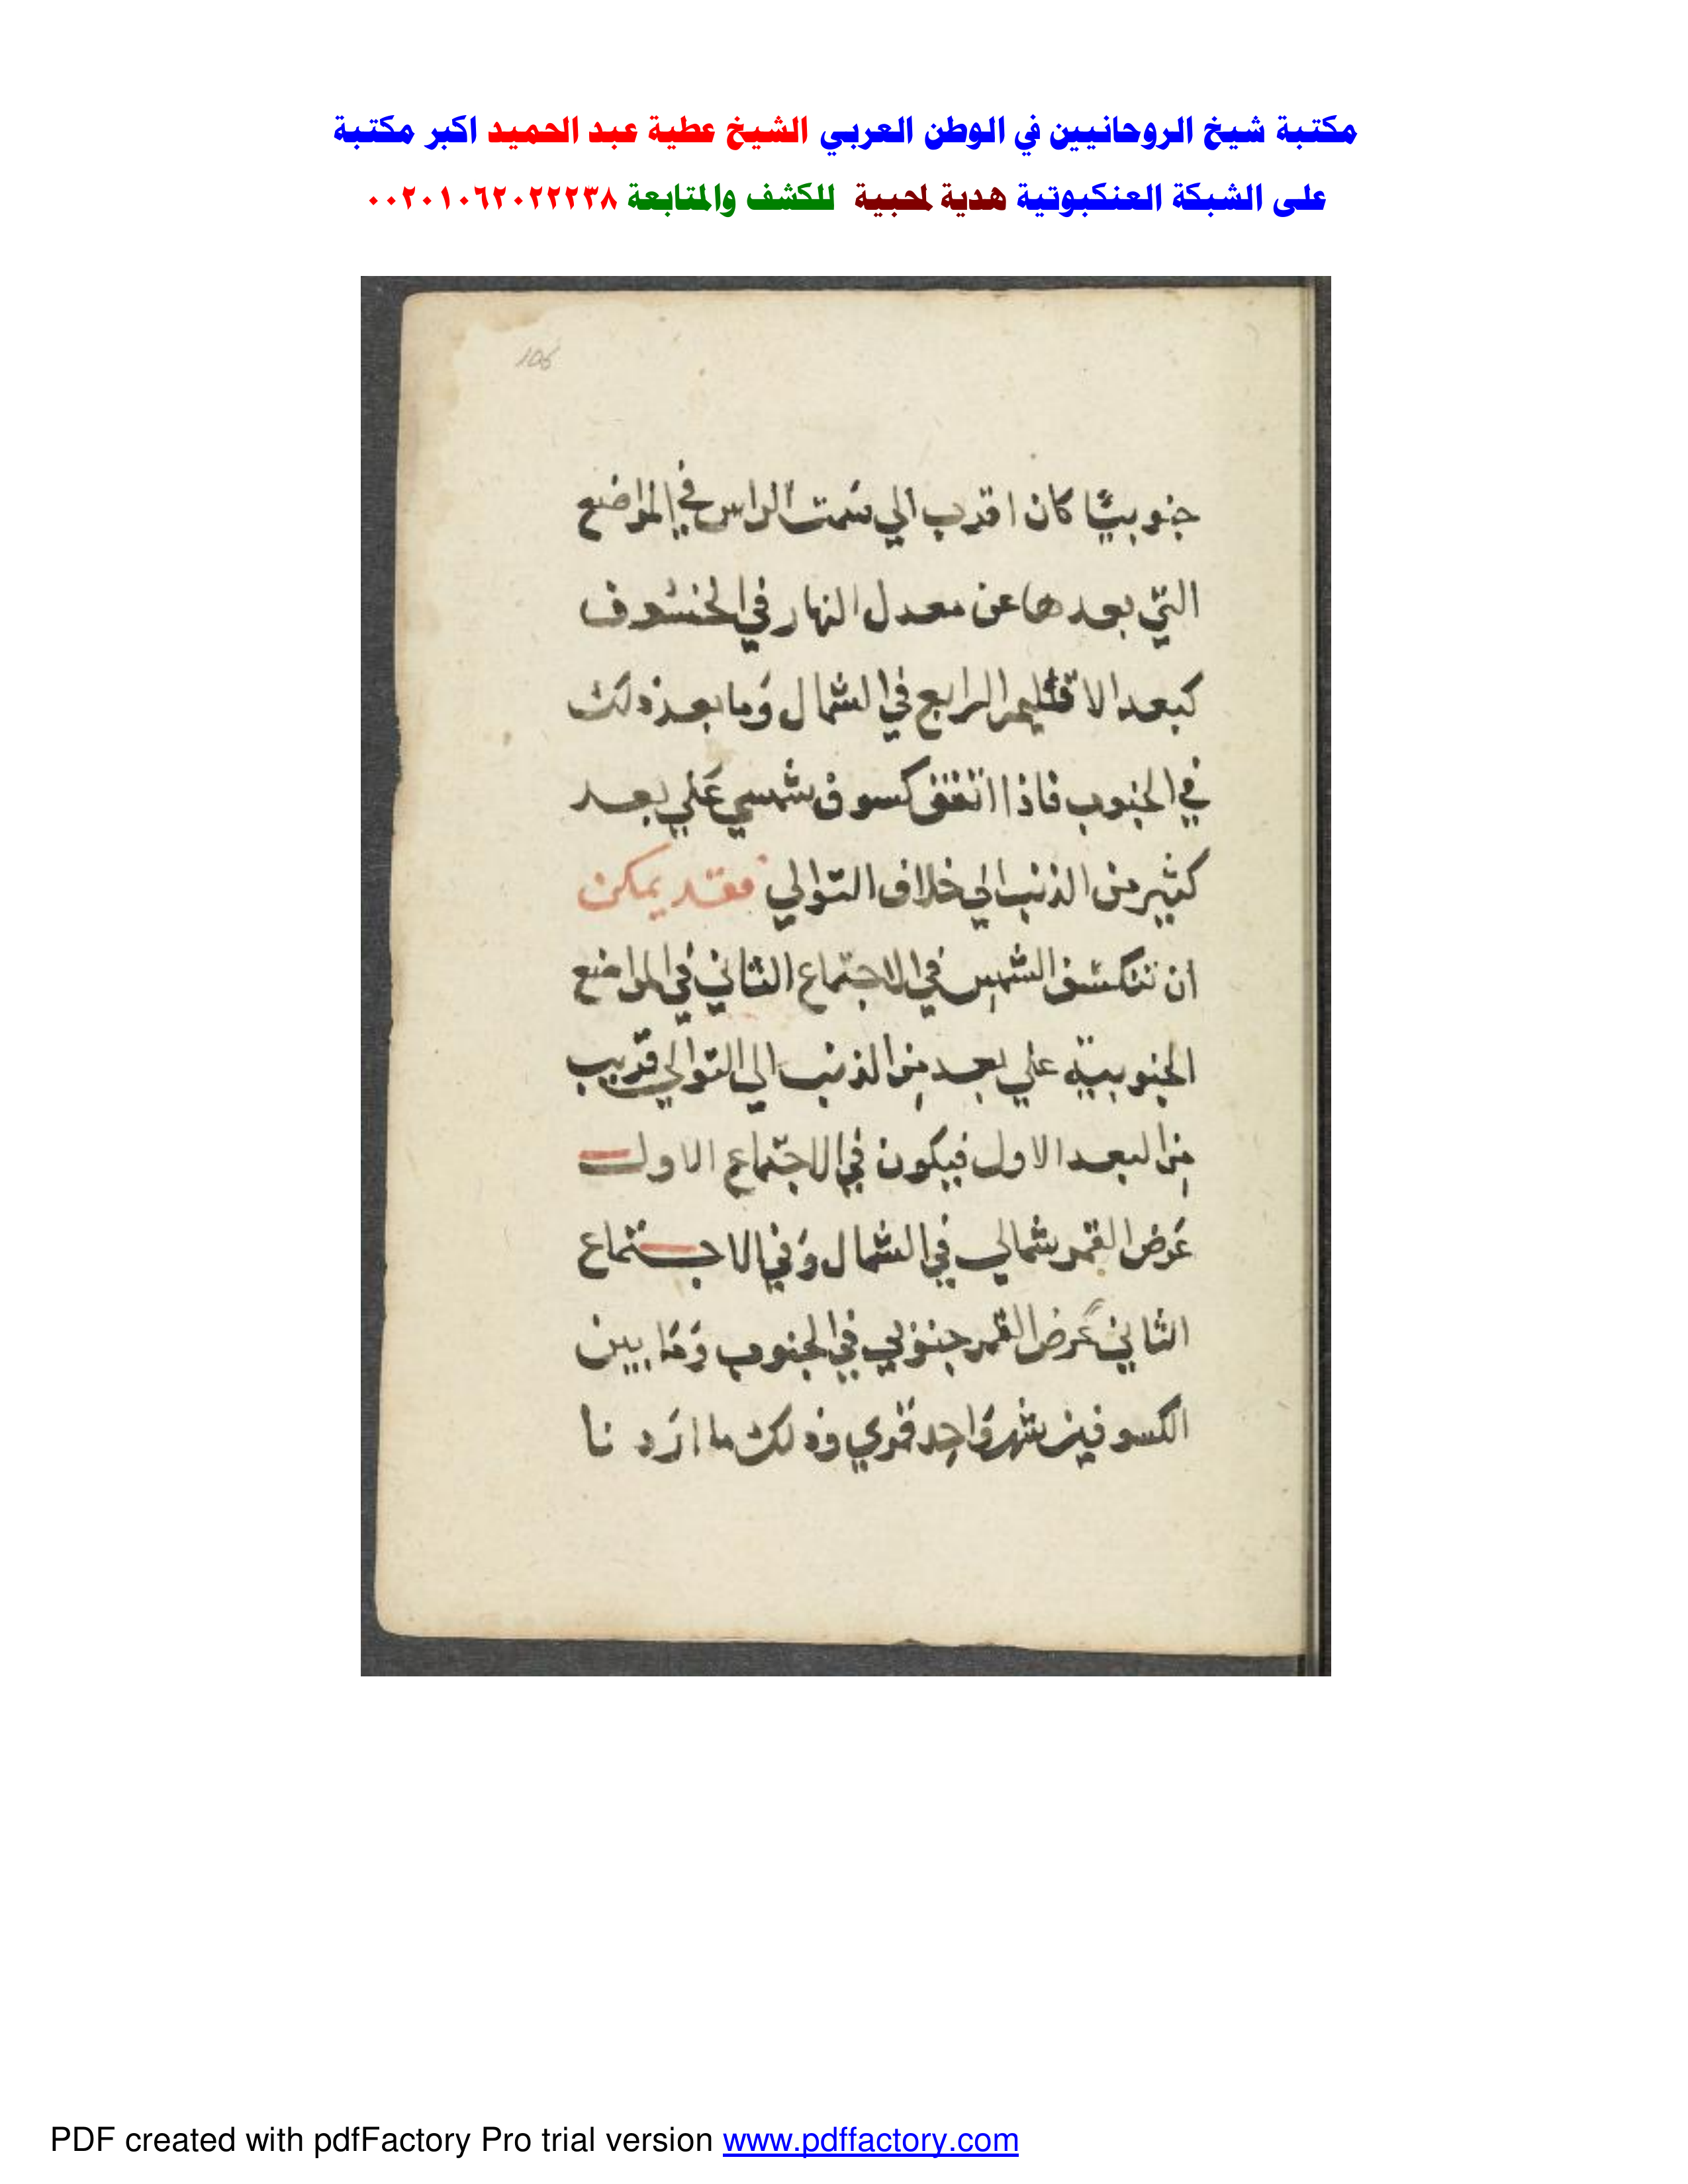 مكتبة شيخ الروحانيين في الوطن العربي الشيخ عطية عبد الحميد اكبر مكتبة
على الشبكة العنكبوتية هدية لمحبية للكشف والمتابعة ٠٠٢٠١٠٦٢٠٢٢٢٣٨
106
جنوبيًا كان اقرب الي سَمت الراس في المواضع
التي بعدها عن معدل النهار في الجنوب
كبعد الاقليم الرابع في الشمال وَما بعد ذلك
في الجنوب فاذا اتفق كسوف شمسي عَلي بعد
كثير من الذنب الي خلاف التوالي فقد يمكن
ان تنكسف الشمس في الاجتماع الثاني في المواضع
الجنوبية علي بعد مِن الذنب الي التوالي قريب
مِن البعد الاول فيكون في الاجتماع الاول
عَرض القمر شمالي في الشمال وَفي الاجتماع
الثاني عَرض القمر جنوبي في الجنوب وَمَا بين
الكسوفين شهر وَاحِد قمري وذلك ما ارَدنا
PDF created with pdfFactory Pro trial version www.pdffactory.com